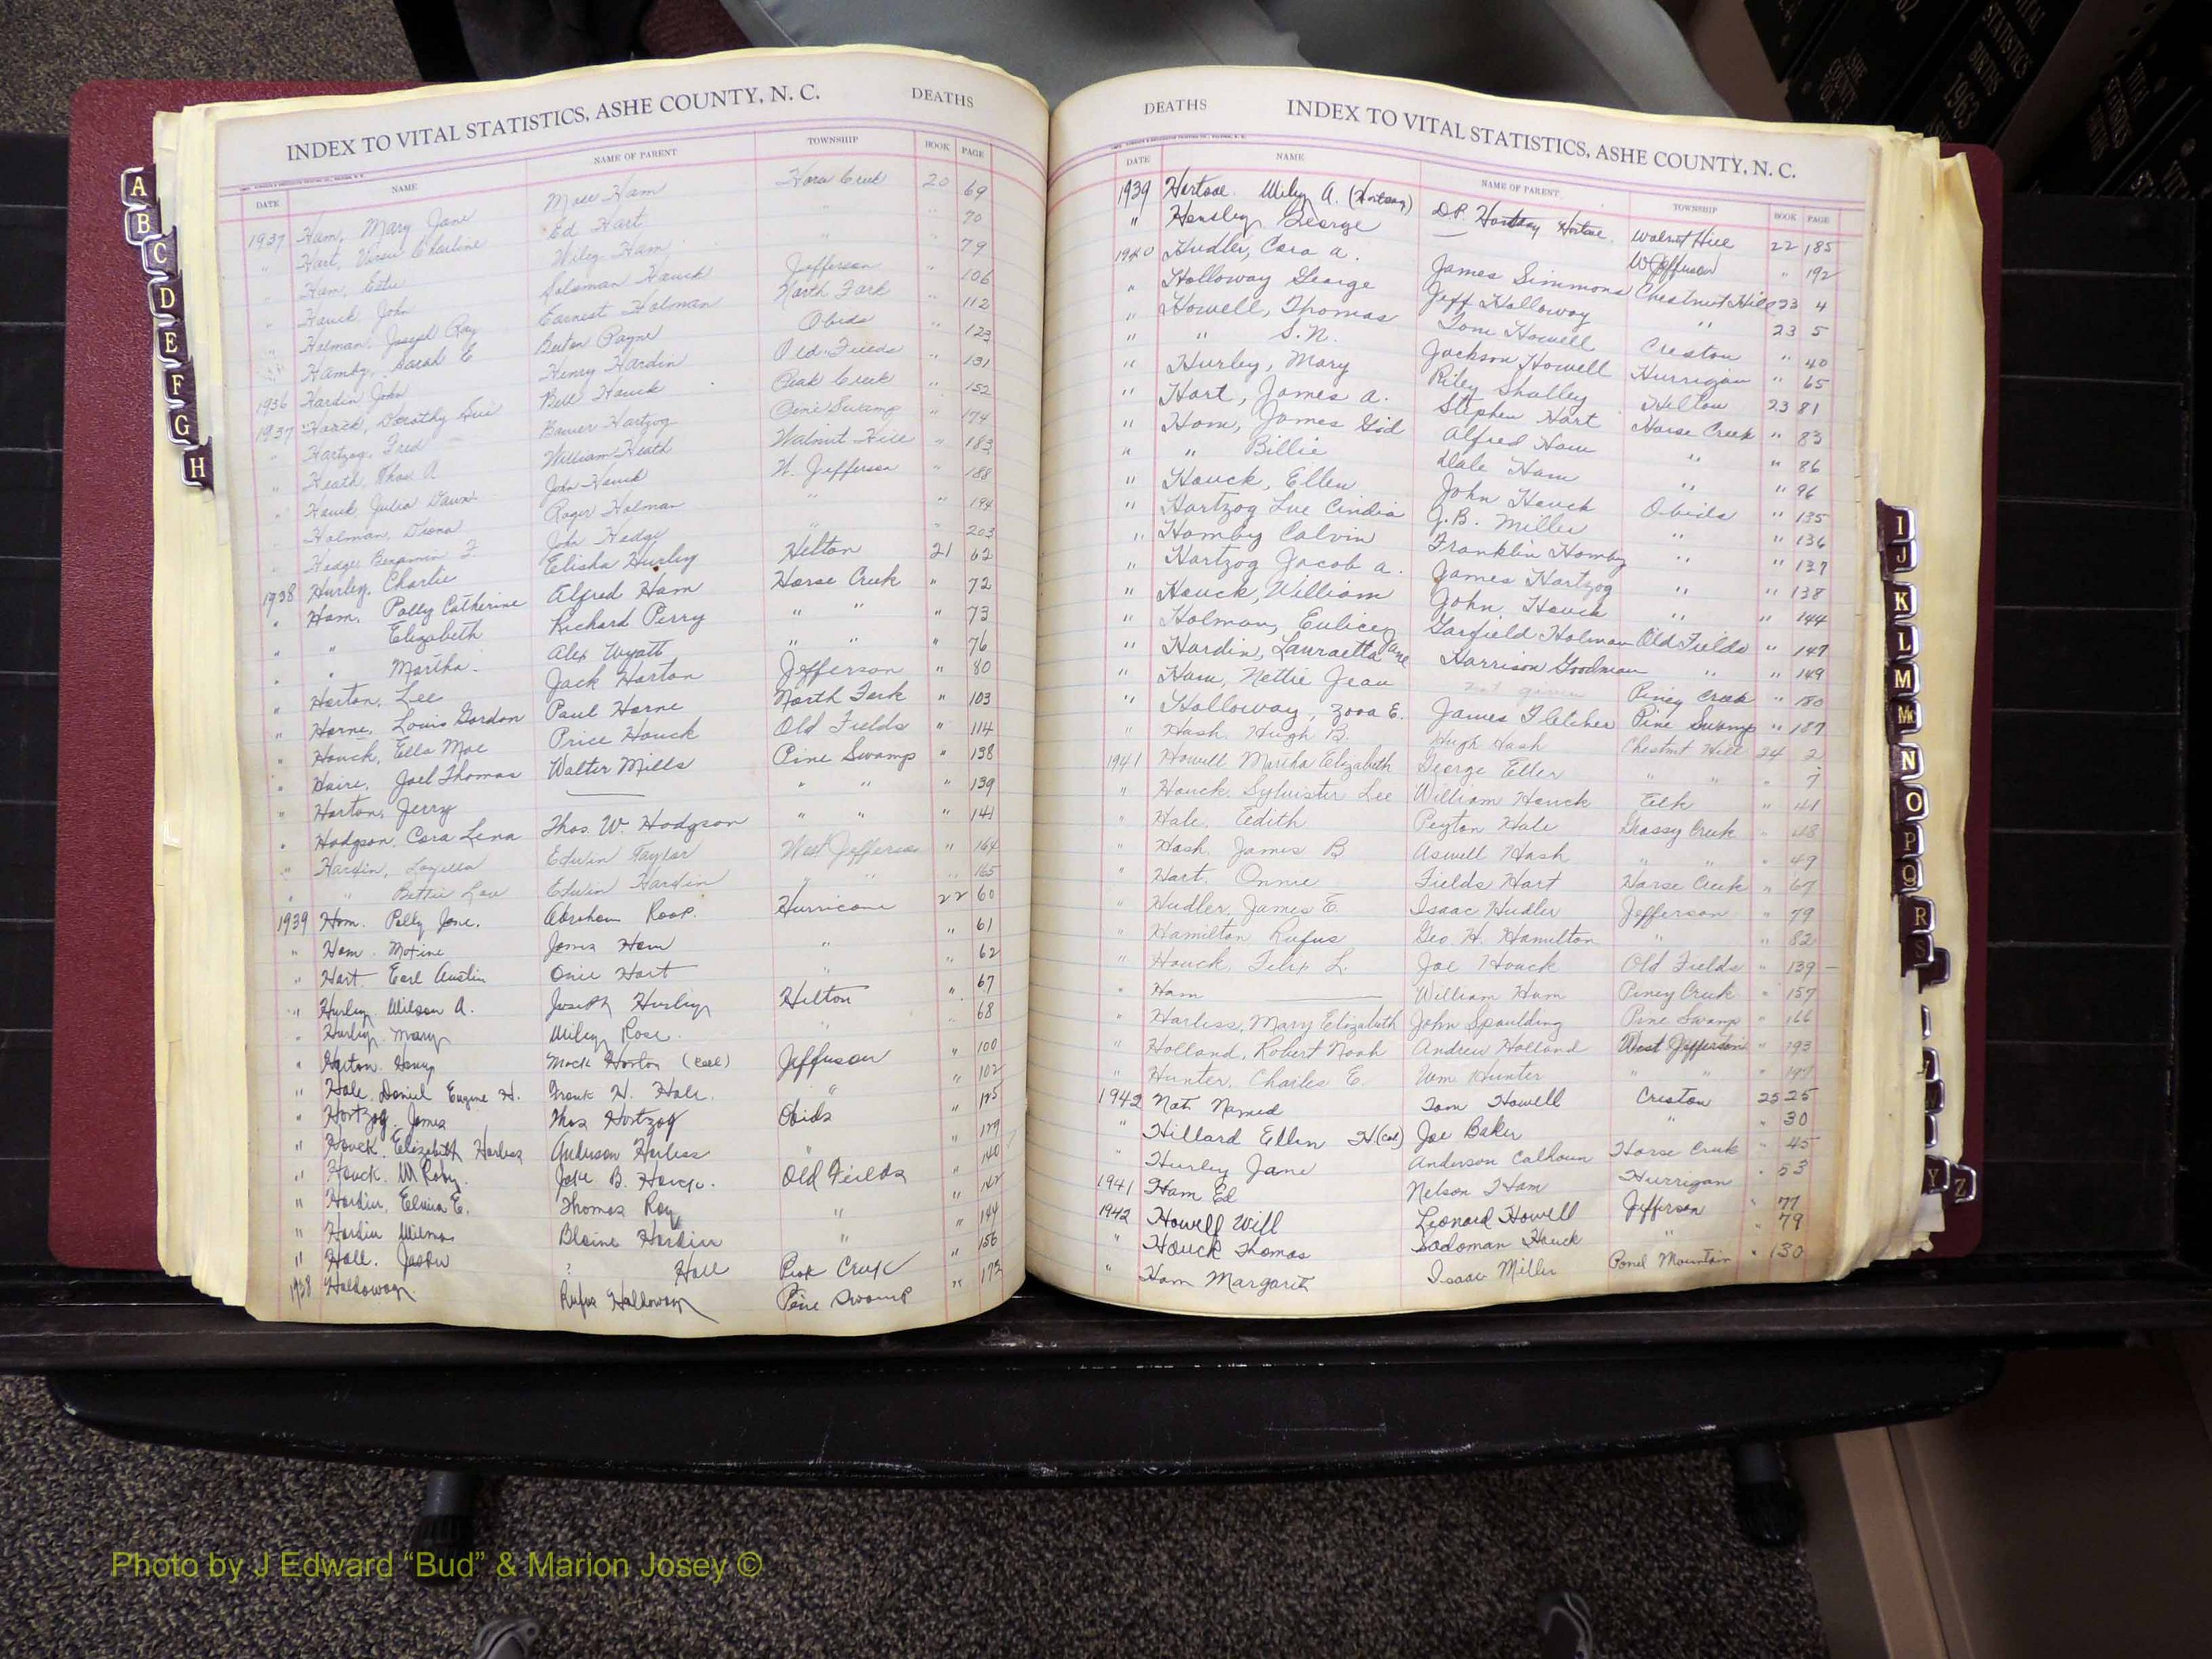 INDEX TO VITAL STATISTICS, ASHE COUNTY, N. C. DEATHS
DATE NAME NAME OF PARENT TOWNSHIP BOOK PAGE
1937 Ham, Mary Jane Mose Ham Horse Creek 20 69
" Hart, Charline Ed Hart " " 70
" Ham, Wiley Ham " " 79
" Houck, John Soloman Houck Jefferson " 106
" Holman, Joseph Ray Earnest Holman North Fork " 112
" Hamby, Sarah E Payne Obids " 123
1936 Hardin John Henry Hardin Old Fields " 131
1937 Houck, Dorothy Sue Bell Houck Peak Creek " 152
" Hartzog, Fred Hartzog Pine Swamp " 174
" Heath, Thos. A William Heath Walnut Hill " 183
" Houck, Julia Dawn John Houck W. Jefferson " 188
" Holman, Diona Roger Holman " " 194
" Hodge, Benjamin F Jno Hodge " " 203
1938 Hurley, Charlie Elisha Hurley Helton 21 62
" Ham, Polly Catherine Alfred Ham Horse Creek " 72
" " Elizabeth Richard Perry " " " 73
" " Martha Alex Wyatt " " " 76
" Horton, Lee Jack Horton Jefferson " 80
" Horne, Louis Gordon Paul Horne North Fork " 103
" Houck, Ella Mae Price Houck Old Fields " 114
" Haire, Joel Thomas Walter Mills Pine Swamp " 138
" Horton, Jerry — " " " 139
" Hodgson, Cora Lena Thos. W. Hodgson " " " 141
" Hardin, Lozilla Edwin Taylor West Jefferson " 164
" " Bettie Lou Edwin Hardin " " " 165
1939 Ham. Polly Jane. Abraham Roop. Hurricane 22 60
" Ham. Maxine James Ham " " 61
" Hart. Earl Austin Osie Hart " " 62
" Hurley, Wilson A. Joseph Hurley Hilton " 67
" Hurley. Mary Wiley Rose. " " 68
" Horton. Henry Mack Horton (Col) Jefferson " 100
" Hale. Daniel Eugene H. Frank H. Hale. " " 102
" Hortzog, James Thos Hortzog Obids " 125
" Houck. Elizabeth Harless Anderson Harless " " 129
" Houck. M Roby. Jake B. Houck. Old Fields " 140
" Hardin, Elvira E. Thomas Ray " " 142
" Hardin Wilma Blaine Hardin " " 144
" Hall. Jasper ? Hall Peak Creek " 156
1938 Holloway. Rufus Holloway Pine Swamp " 172
DEATHS INDEX TO VITAL STATISTICS, ASHE COUNTY, N. C.
DATE NAME NAME OF PARENT TOWNSHIP BOOK PAGE
1939 Hartsoe. Wiley A. (Hartsog) D.P. Hartsog Hartsoe. Walnut Hill 22 185
" Hensley, George — W Jefferson " 192
1940 Hudler, Cora A. James Simmons Chestnut Hill 23 4
" Holloway George Jeff Holloway " 23 5
" Howell, Thomas Tom Howell Creston " 40
" " S.N. Jackson Howell Hurrigan " 65
" Hurley, Mary Riley Shalley Helton 23 81
" Hart, James A. Stephen Hart Horse Creek " 83
" Ham, James Gid Alfred Ham " " 86
" " Billie Dale Ham " " 96
" Houck, Ellen John Houck Obids " 135
" Hartzog Lue Cindia J.B. Miller " " 136
" Hamby Calvin Franklin Hamby " " 137
" Hartzog Jacob A. James Hartzog " " 138
" Houck, William John Houck " " 144
" Holman, Eulice Garfield Holman Old Fields " 147
" Hardin, Lauraetta Jane Harrison Goodman " " 149
" Ham, Nettie Jean not given Piney Creek " 180
" Holloway, Zora E. James Fletcher Pine Swamp " 187
" Hash. Hugh B. Hugh Hash Chestnut Hill 24 2
1941 Howell Martha Elizabeth George Eller " " " 7
" Houck. Sylvister Lee William Houck Elk " 41
" Hale. Edith Peyton Hale Grassy Creek " 48
" Hash. James B Aswell Hash " " " 49
" Hart. Onnie Fields Hart Horse Creek " 67
" Hudler, James E. Isaac Hudler Jefferson " 79
" Hamilton, Rufus Geo. H. Hamilton " " 82
" Houck, Felix L. Joe Houck Old Fields " 139
" Ham — William Ham Piney Creek " 157
" Harless, Mary Elizabeth John Spaulding Pine Swamp " 166
" Holland, Robert Noah Andrew Holland West Jefferson " 193
" Hunter, Charles E. Wm. Hunter " " "
1942 Not Named Tom Howell Creston 25 25
" Hillard Ellen H (col) Joe Baker " " 30
" Hurley Jane Anderson Calhoun Horse Creek " 45
1941 Ham Ed Nelson Ham Hurrigan " 53
1942 Howell Will Leonard Howell Jefferson " 77
" Houck Thomas Sodoman Houck " " 79
" Ham Margarit Isaac Miller Pond Mountain " 130
A
B
C
D
E
F
G
H
I
J
K
L
M
Mc
N
O
P
Q
R
S
Y
Z
ASHE COUNTY
VITAL STATISTICS BIRTHS 1963
Photo by J Edward “Bud” & Marion Josey ©